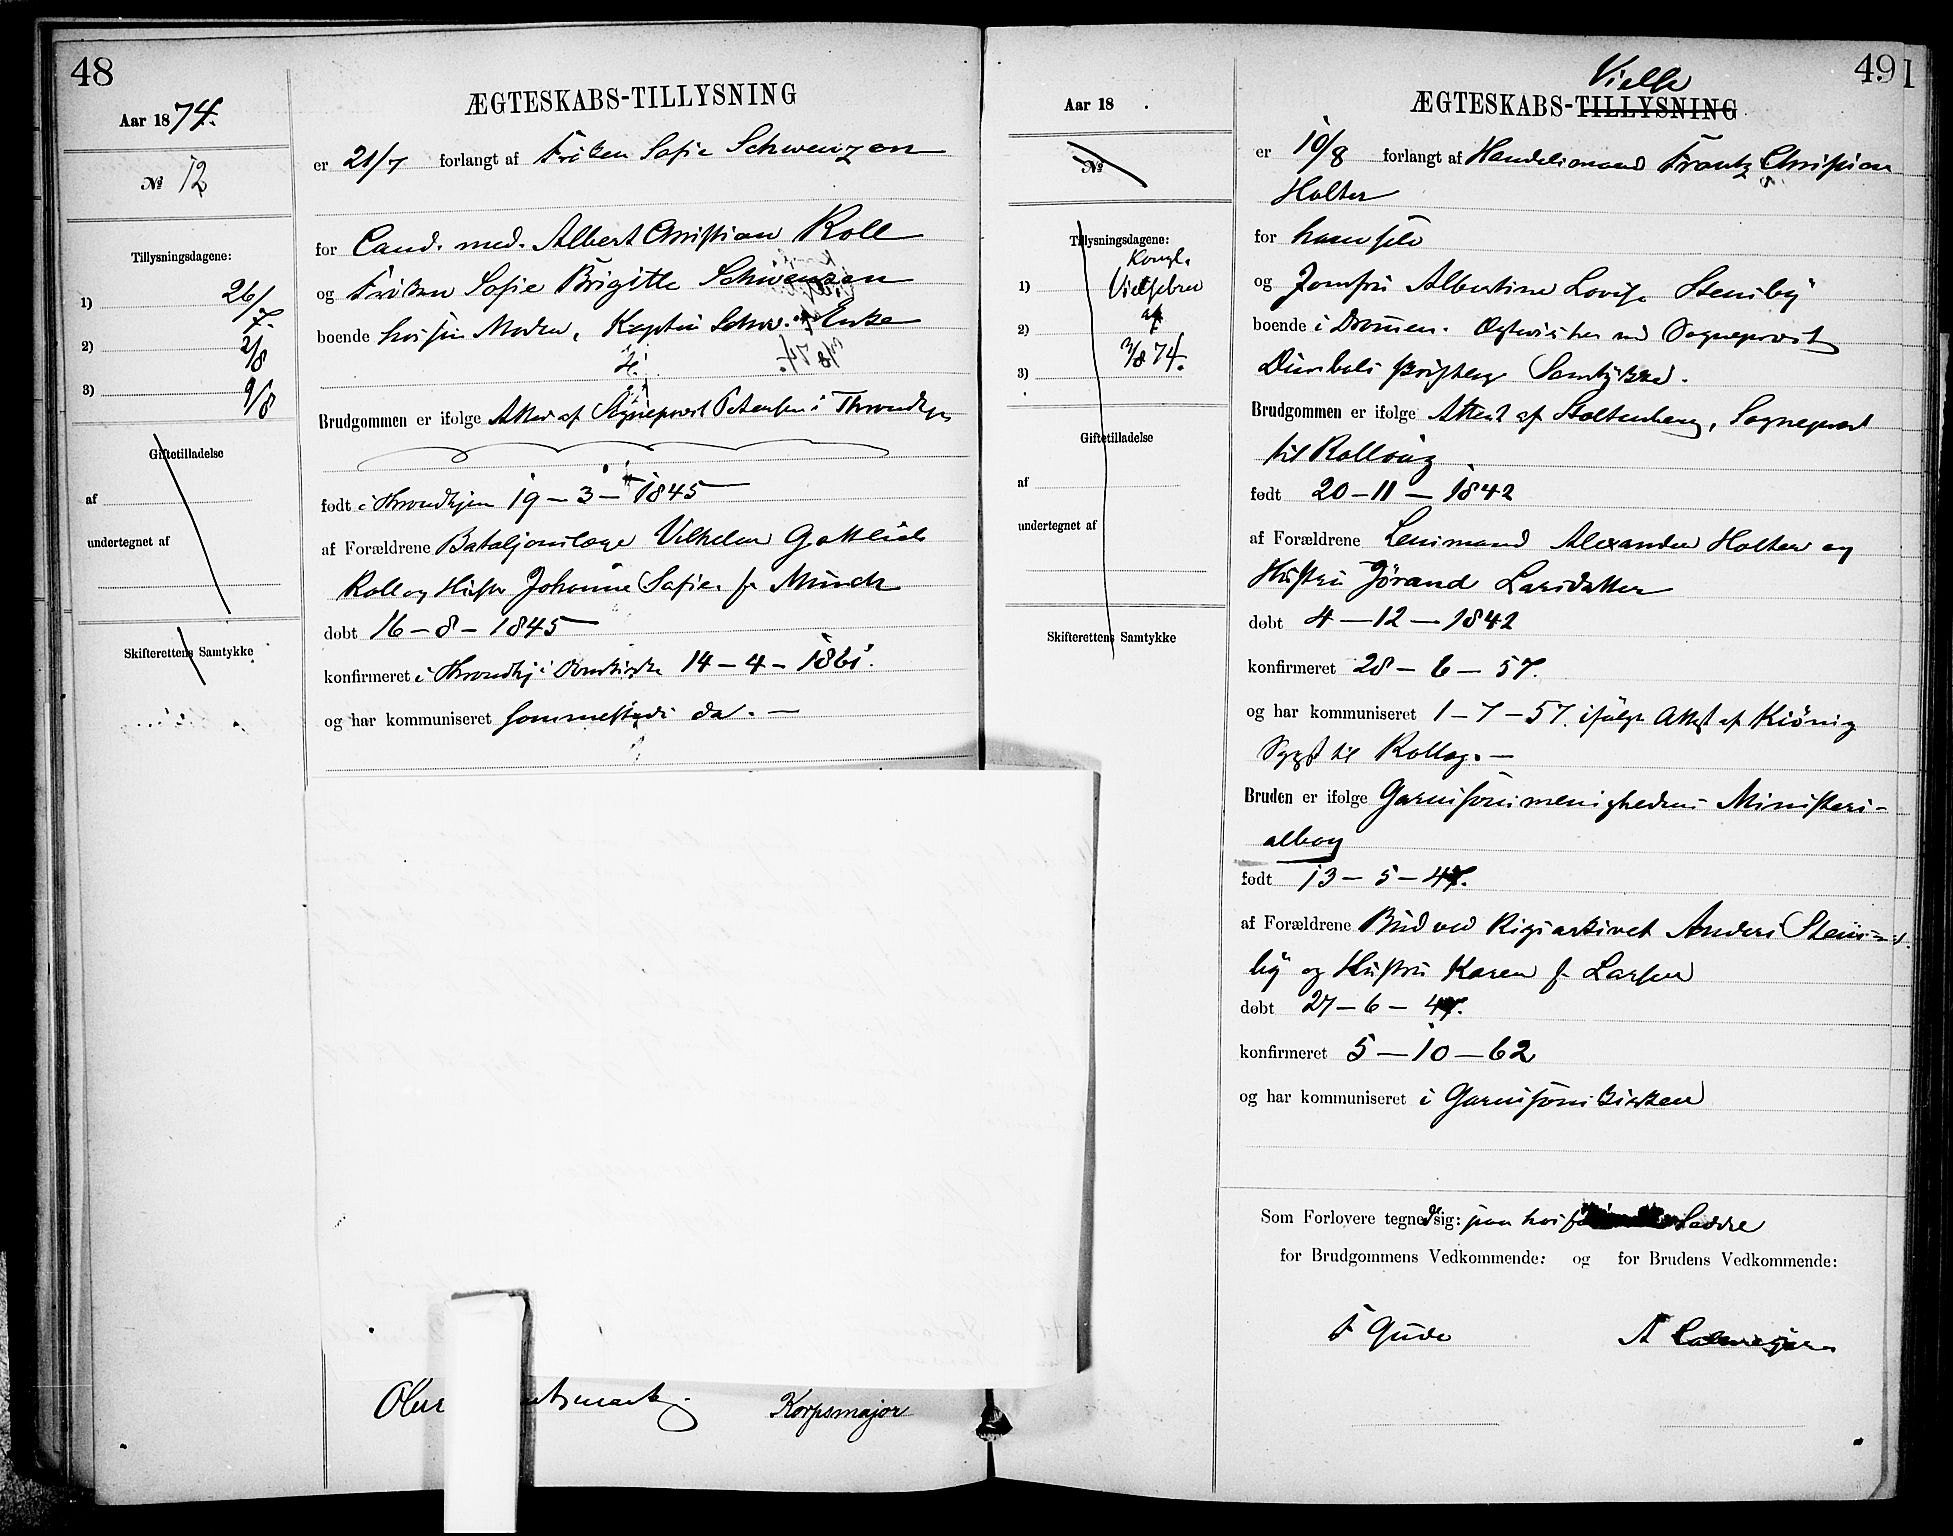 48
Aar 1874.
№ 12
Tillysningsdagene:
1) 26/7.
2) 2/8
3) 9/8
Giftetilladelse
af
undertegnet af
Skifterettens Samtykke
ÆGTESKABS-TILLYSNING
er 21/7 forlangt af Frøken Sofie Schwenzen
for Cand. med. Albert Christian Roll
og Frøken Sofie Birgitte Schwenzen
boende hos sin Moder, Kaptein Schw. Enke
Brudgommen er ifølge Attest af Sogneprest Petersen i Throndhjem
født i Throndhjem 19-3-1845
af Forældrene Bataljonslæge Vilhelm Gottlieb
Roll og Hustru Johanne Sofie f. Münch
døbt 16-8-1845
konfirmeret i Throndhj. Domkirke 14-4-1861.
og har kommuniseret sammesteds da.
Korpsmajor
49
Aar 18 .
№
Tillysningsdagene:
Kongl.
1) Vielsebrev
2) af
3) 3/8 74.
Giftetilladelse
af
undertegnet af
Skifterettens Samtykke
Vielse
ÆGTESKABS-TILLYSNING
er 10/8 forlangt af Handelsmand Frantz Christian
Holter
for ham selv
og Jomfru Albertine Lovise Stensby
boende i Drømen. Ægtevies her med Sogneprest
skriftlige Samtykke.
Brudgommen er ifølge Attest af Stoltenberg, Sogneprest
til Rollaug
født 20-11-1842
af Forældrene Lensmand Alexander Holter og
Hustru Jørand Larsdatter
døbt 4-12-1842
konfirmeret 28-6-57.
og har kommuniseret 1-7-57. ifølge Attest af Kiønig
Sgpst til Rollag.
Bruden er ifølge Garnisonsmenighedens Ministeri-
albog
født 13-5-47.
af Forældrene Bud ved Rigsarkivet Anders Stens-
by og Hustru Karen f. Larsen
døbt 27-6-47.
konfirmeret 5-10-62
og har kommuniseret i Garnisonskirken
Som Forlovere tegnede sig:
for Brudgommens Vedkommende: og for Brudens Vedkommende:
F Gude